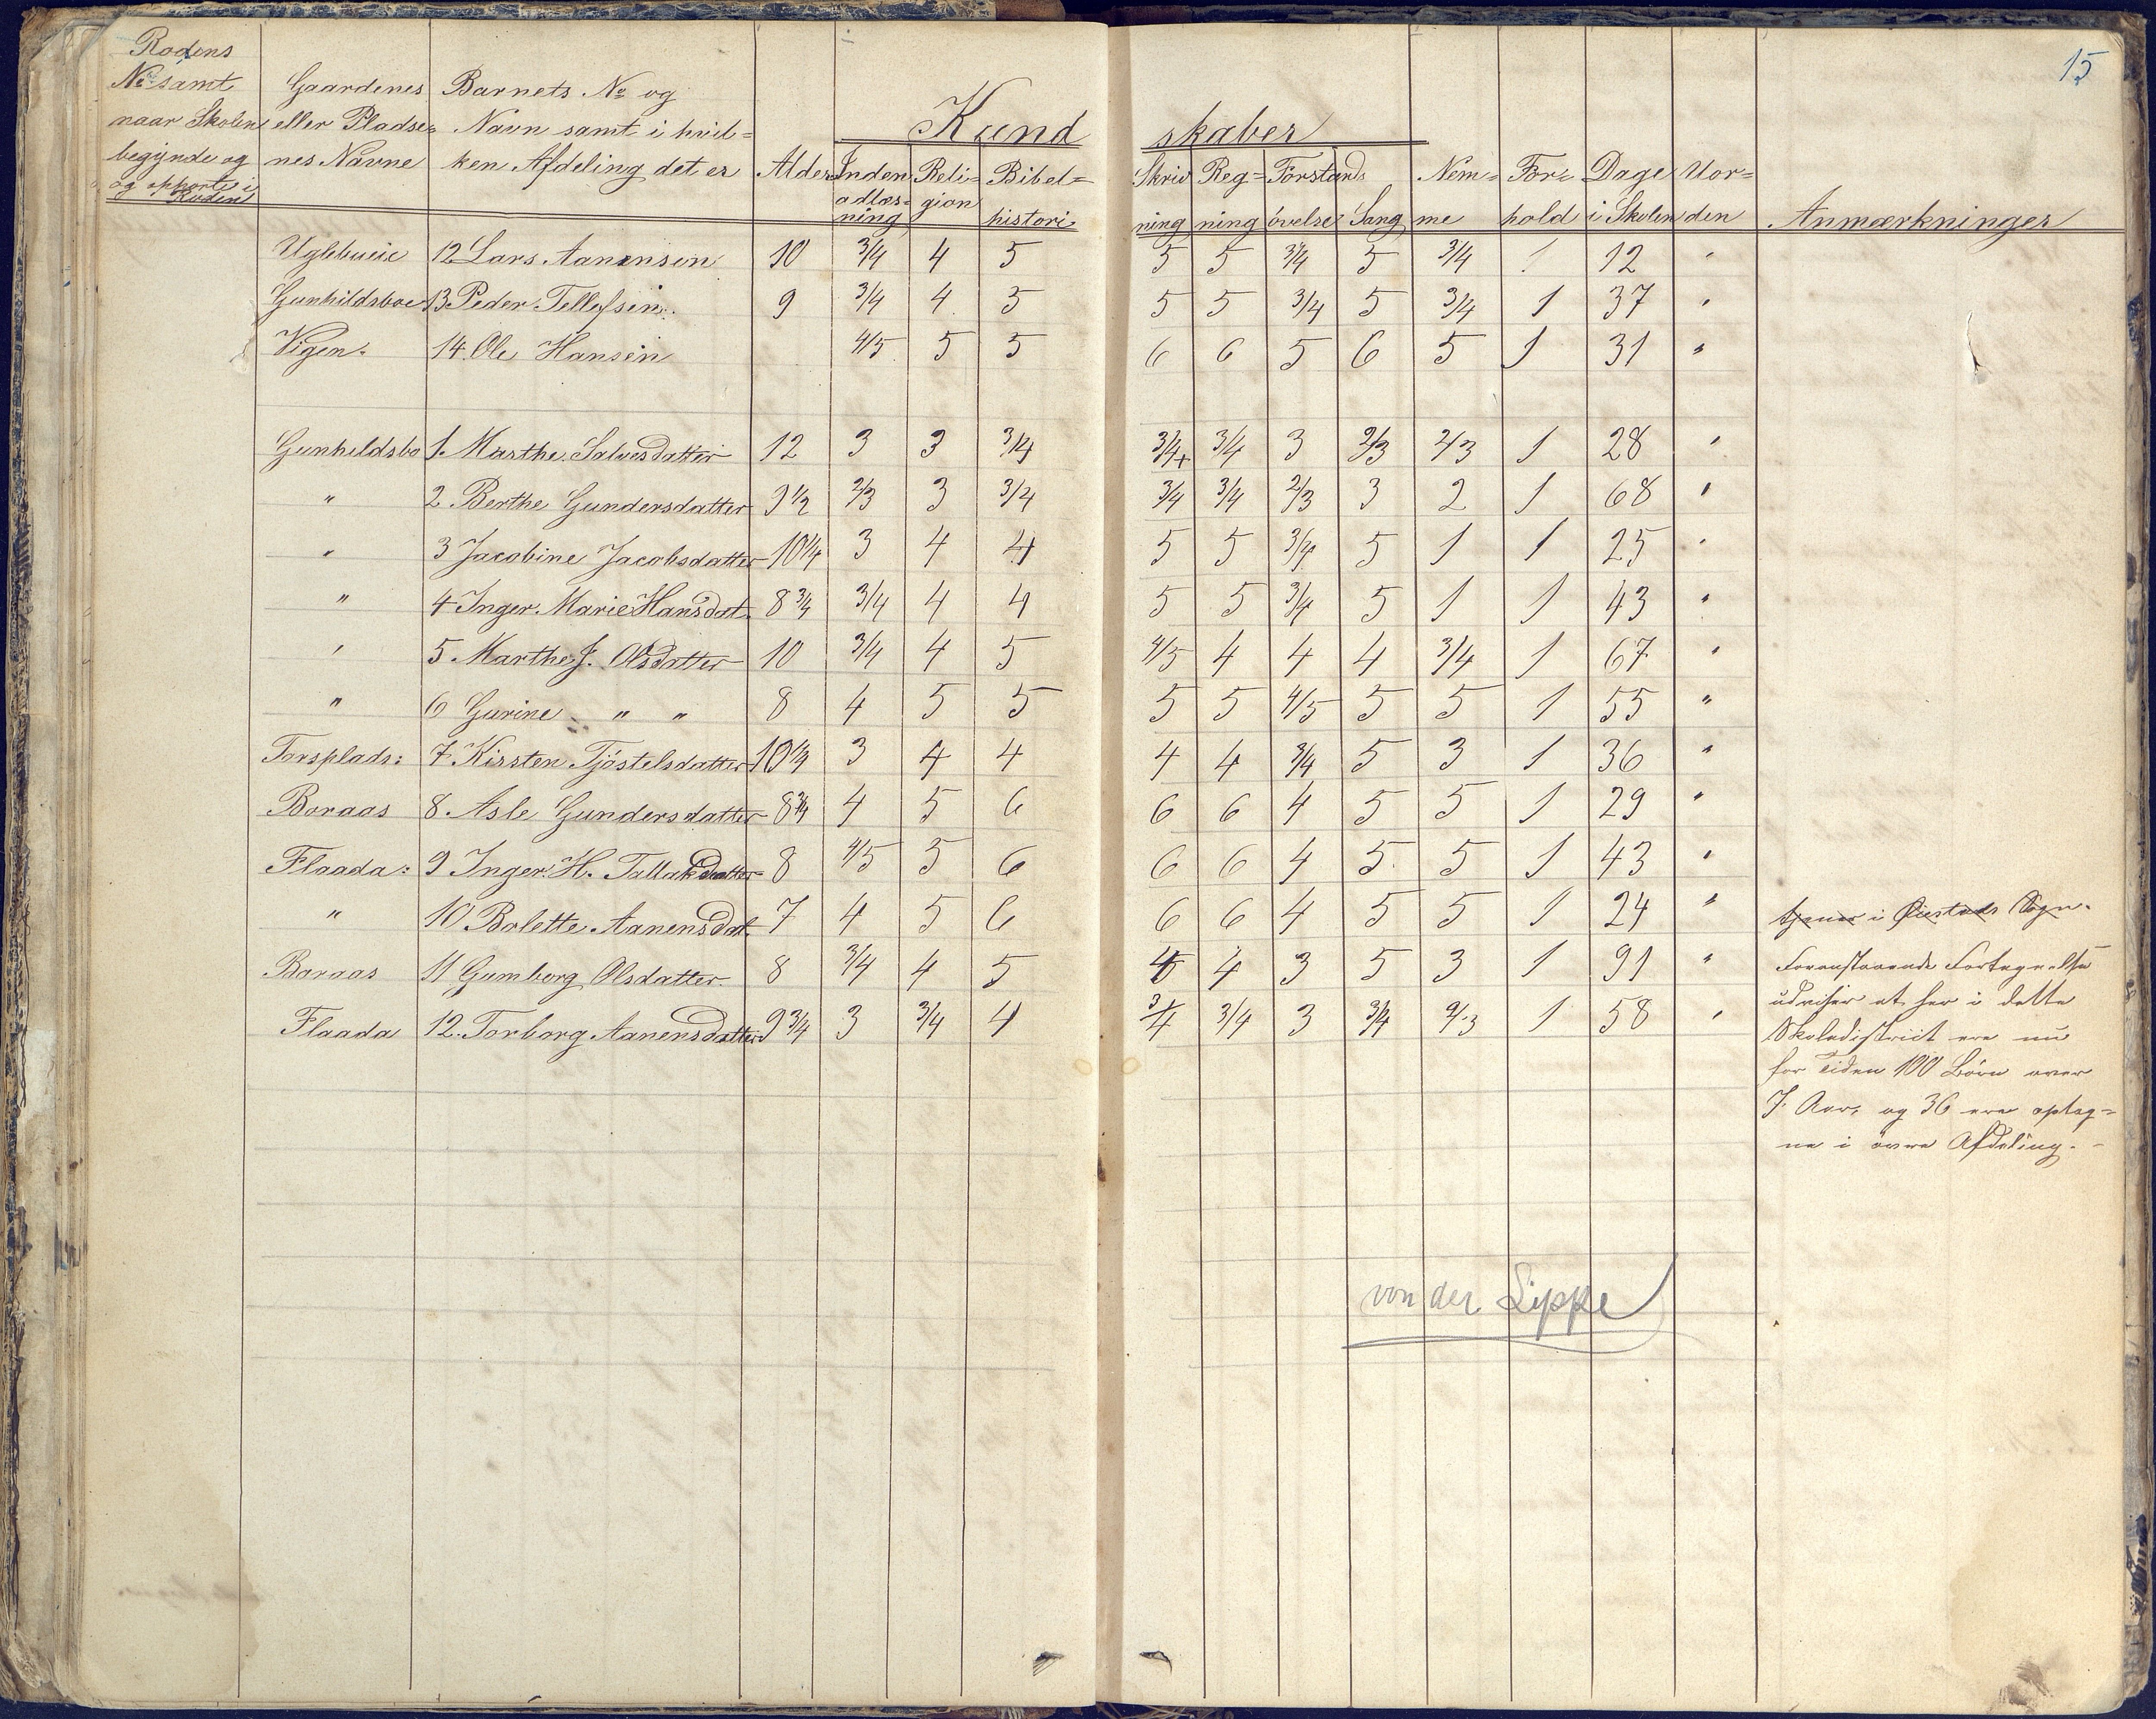 15
Rodens
No samt
naar Skolen
begÿnde og
og ophörte i
Roden
Gaardenes
eller Pladse-
nes Navne
Barnets No og
Navn samt i hvil-
ken Afdeling det er
Alder
Kund skaber
Inden
adlæs-
ning
Reli-
gion
Bibel-
histori
Skriv
ning
Reg-
ning
Forstands
övelse
Sang
Nem-
me
For-
hold
Dage
i Skolen
Uor-
den
Anmærkninger
12 Lars Aanensen 10 3/4 4 5 5 5 3/4 5 3/4 1 12 "
Gunhildsboe 13 Peder Tellefsen 9 3/4 4 5 5 5 3/4 5 3/4 1 37 "
Vigen 14 Ole Hansen 4/5 5 5 6 6 5 6 5 1 31 "
Gunhildsbo 1. Marthe Salvesdatter 12 3 3 3/4 3/4+ 3/4 3 2/3 2/3 1 28 "
" 2 Berthe Gundersdatter 9 1/2 2/3 3 3/4 3/4 3/4 2/3 3 2 1 68 "
" 3 Jacobine Jacobsdatter 10 1/4 3 4 4 5 5 3/4 5 1 1 25 "
" 4 Inger Marie Hansdat. 8 3/4 3/4 4 4 5 5 3/4 5 1 1 43 "
" 5 Marthe J. Olsdatter 10 3/4 4 5 4/5 4 4 4 3/4 1 67 "
" 6 Gurine " " 8 4 5 5 5 5 4/5 5 5 1 55 "
Torsplads: 7 Kirsten Tjöstelsdatter 10 1/4 3 4 4 4 4 3/4 5 3 1 36 "
Boraas 8 Asle Gundersdatter 8 3/4 4 5 6 6 6 4 5 5 1 29 "
Flaada: 9 Inger H. Tallaksdatter 8 4/5 5 6 6 6 4 5 5 1 43 "
" 10 Bolette Aanensdat. 7 4 5 6 6 6 4 5 5 1 24 " tjener i Öiestads Sogn.
Boraas 11 Gumborg Olsdatter 8 3/4 4 5 4 3 5 3 1 91 "
Flaada 12. Torborg Aanensdatter 9 3/4 3 3/4 4 3/4 3/4 3 3/4 2/3 1 58 "
Foranstaaende Fortegnelse
udviser at her i dette
Skoledistriict ere nu
for Tiden 100 Börn over
7. Aar, og 36 ere optag-
ne i övre Afdeling. -
von der Lippe